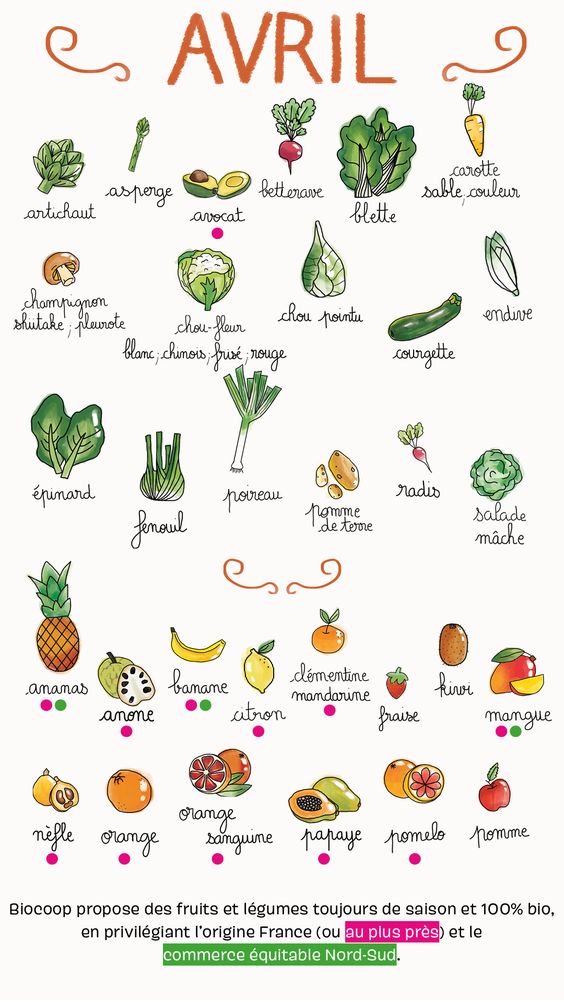 AVRIL
artichaut
asperge
avocat
betterave
blette
carotte
sable, couleur
champignon
shiitake ; pleurote
chou-fleur
blanc ; chinois ; frisé ; rouge
chou pointu
courgette
endive
épinard
fenouil
poireau
pomme
de terre
radis
salade
mâche
ananas
anone
banane
citron
clémentine
mandarine
fraise
kiwi
mangue
nèfle
orange
orange
sanguine
papaye
pomelo
pomme
Biocoop propose des fruits et légumes toujours de saison et 100% bio,
en privilégiant l'origine France (ou au plus près) et le
commerce équitable Nord-Sud.